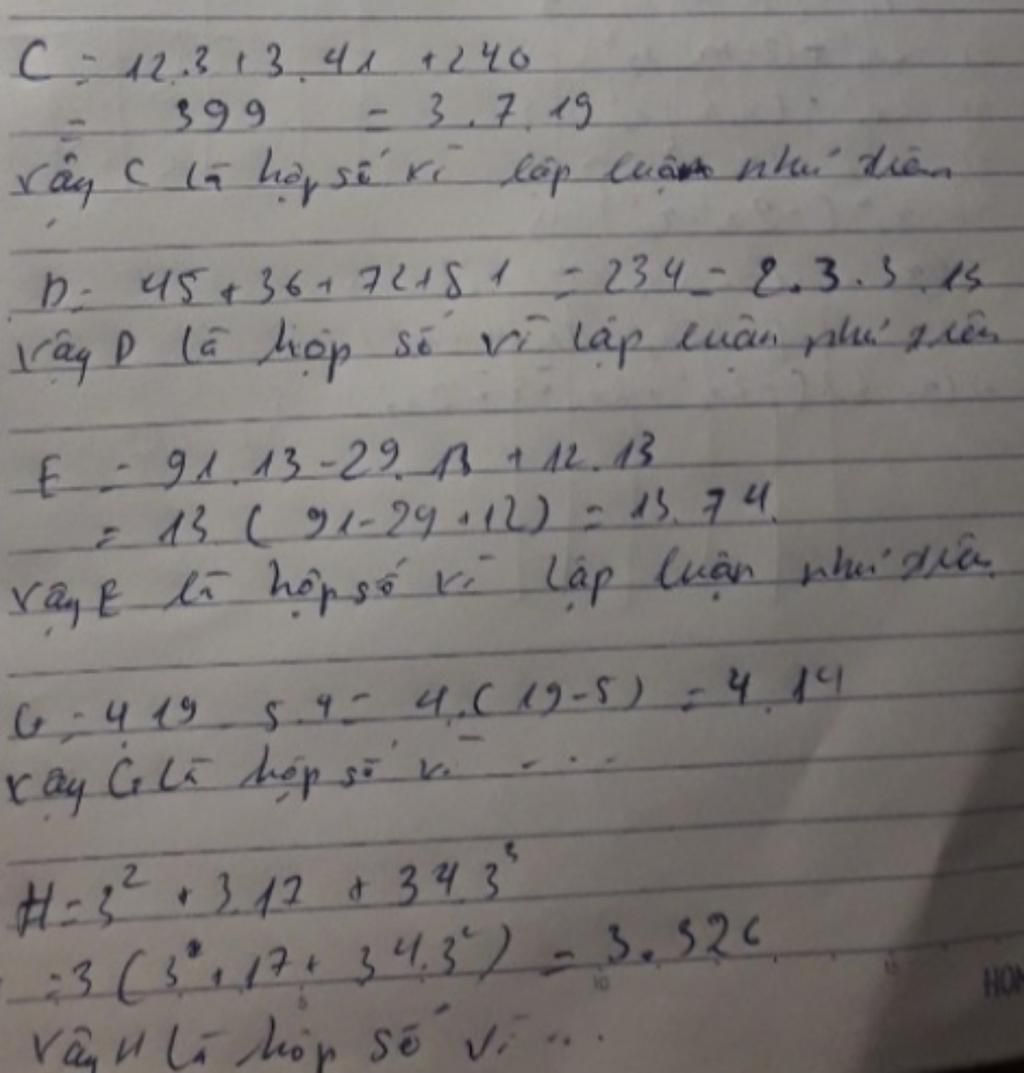 C = 12.3 + 3.41 + 240
= 399 = 3.7.19
Vậy C là hợp số vì lập luận như trên
D = 45 + 36 + 72 + 81 = 234 = 2.3.3.13
Vậy D là hợp số vì lập luận như trên
E = 91.13 - 29.13 + 12.13
= 13 ( 91 - 29 + 12 ) = 13.74
Vậy E là hợp số vì lập luận như trên
G = 4.19 - 5.4 = 4.( 19 - 5 ) = 4.14
Vậy G là hợp số vì ....
H = 3² + 3.17 + 34.3³
= 3 ( 3 + 17 + 34.3² ) = 3.326
Vậy H là hợp số vì ...